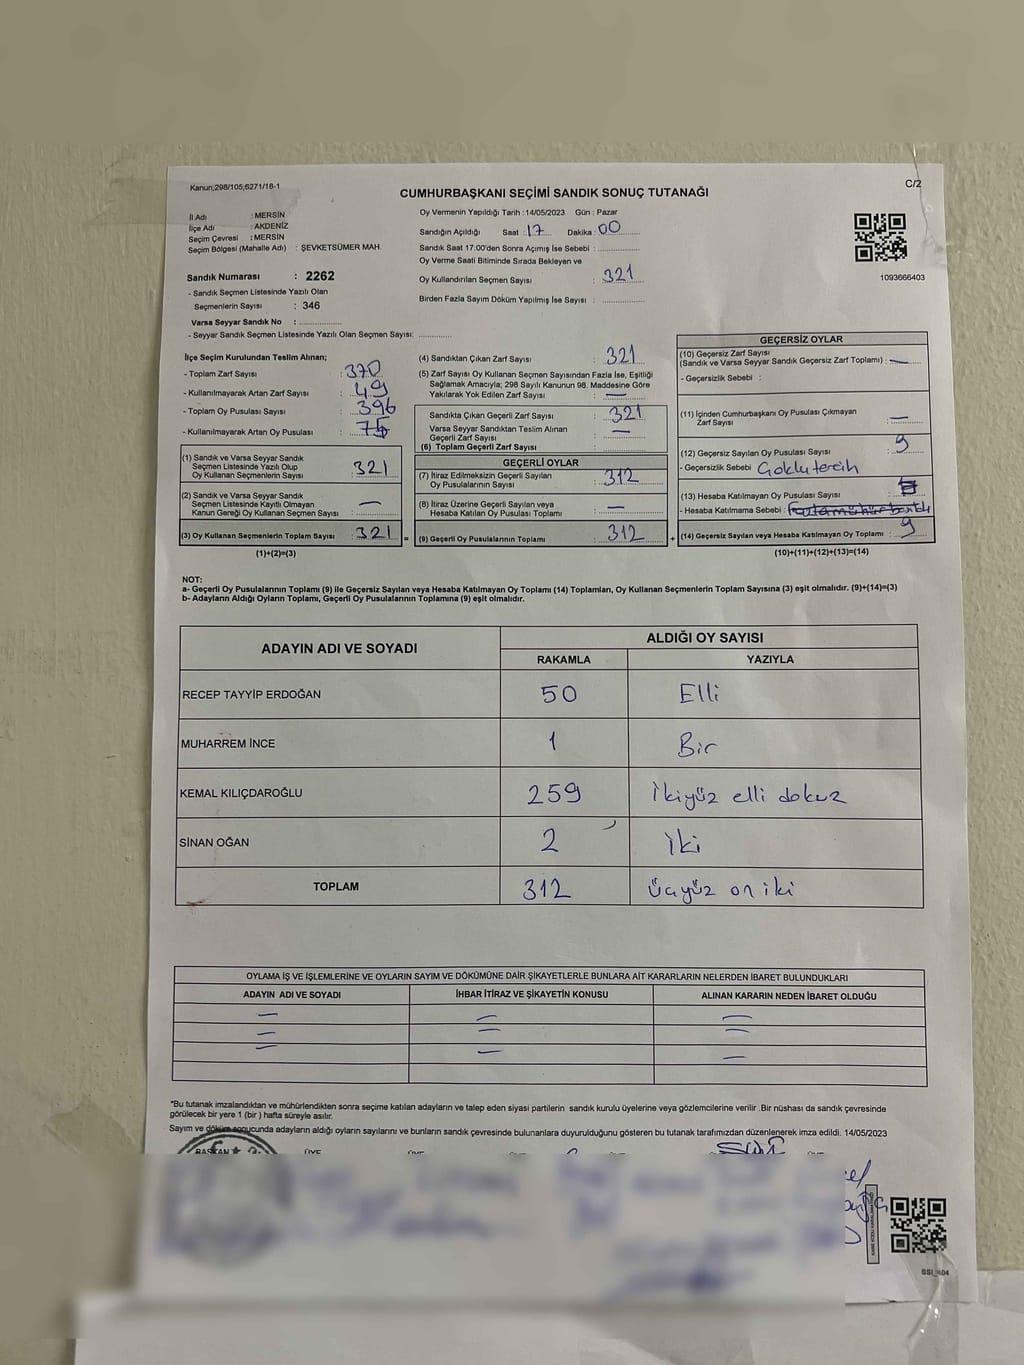 Kanun;298/105,6271/18-1
C/2
CUMHURBAŞKANI SEÇİMİ SANDIK SONUÇ TUTANAĞI
İl Adı : MERSİN
İlçe Adı : AKDENİZ
Seçim Çevresi : MERSİN
Seçim Bölgesi (Mahalle Adı) : ŞEVKETSÜMER MAH.
Sandık Numarası : 2262
- Sandık Seçmen Listesinde Yazılı Olan
Seçmenlerin Sayısı : 346
Varsa Seyyar Sandık No :
- Seyyar Sandık Seçmen Listesinde Yazılı Olan Seçmen Sayısı:
Oy Vermenin Yapıldığı Tarih :14/05/2023 Gün : Pazar
Sandığın Açıldığı Saat : 17 Dakika : 00
Sandık Saat 17:00'den Sonra Açımış İse Sebebi :
Oy Verme Saati Bitiminde Sırada Bekleyen ve
Oy Kullandırılan Seçmen Sayısı : 321
Birden Fazla Sayım Döküm Yapılmış İse Sayısı :
1093666403
İlçe Seçim Kurulundan Teslim Alınan;
- Toplam Zarf Sayısı : 370
- Kullanılmayarak Artan Zarf Sayısı : 49
- Toplam Oy Pusulası Sayısı : 396
- Kullanılmayarak Artan Oy Pusulası : 75
(1) Sandık ve Varsa Seyyar Sandık
Seçmen Listesinde Yazılı Olup
Oy Kullanan Seçmenlerin Sayısı : 321
(2) Sandık ve Varsa Seyyar Sandık
Seçmen Listesinde Kayıtlı Olmayan
Kanun Gereği Oy Kullanan Seçmen Sayısı : —
(3) Oy Kullanan Seçmenlerin Toplam Sayısı : 321 =
(1)+(2)=(3)
(4) Sandıktan Çıkan Zarf Sayısı : 321
(5) Zarf Sayısı Oy Kullanan Seçmen Sayısından Fazla İse, Eşitliği
Sağlamak Amacıyla; 298 Sayılı Kanunun 98. Maddesine Göre
Yakılarak Yok Edilen Zarf Sayısı : —
Sandıkta Çıkan Geçerli Zarf Sayısı : 321
Varsa Seyyar Sandıktan Teslim Alınan
Geçerli Zarf Sayısı : —
(6) Toplam Geçerli Zarf Sayısı :
GEÇERLİ OYLAR
(7) İtiraz Edilmeksizin Geçerli Sayılan
Oy Pusulalarının Sayısı : 312
(8) İtiraz Üzerine Geçerli Sayılan veya
Hesaba Katılan Oy Pusulası Toplamı : —
(9) Geçerli Oy Pusulalarının Toplamı : 312 +
GEÇERSİZ OYLAR
(10) Geçersiz Zarf Sayısı
(Sandık ve Varsa Seyyar Sandık Geçersiz Zarf Toplamı) : —
- Geçersizlik Sebebi :
(11) İçinden Cumhurbaşkanı Oy Pusulası Çıkmayan
Zarf Sayısı : —
(12) Geçersiz Sayılan Oy Pusulası Sayısı : 9
- Geçersizlik Sebebi : Çoklu tercih
(13) Hesaba Katılmayan Oy Pusulası Sayısı :
- Hesaba Katılmama Sebebi :
(14) Geçersiz Sayılan veya Hesaba Katılmayan Oy Toplamı : 9
(10)+(11)+(12)+(13)=(14)
NOT:
a- Geçerli Oy Pusulalarının Toplamı (9) ile Geçersiz Sayılan veya Hesaba Katılmayan Oy Toplamı (14) Toplamları, Oy Kullanan Seçmenlerin Toplam Sayısına (3) eşit olmalıdır. (9)+(14)=(3)
b- Adayların Aldığı Oyların Toplamı, Geçerli Oy Pusulalarının Toplamına (9) eşit olmalıdır.
ADAYIN ADI VE SOYADI
ALDIĞI OY SAYISI
RAKAMLA YAZIYLA
RECEP TAYYİP ERDOĞAN 50 Elli
MUHARREM İNCE 1 Bir
KEMAL KILIÇDAROĞLU 259 İkiyüz elli dokuz
SİNAN OĞAN 2 İki
TOPLAM 312 Üçyüz on iki
OYLAMA İŞ VE İŞLEMLERİNE VE OYLARIN SAYIM VE DÖKÜMÜNE DAİR ŞİKAYETLERLE BUNLARA AİT KARARLARIN NELERDEN İBARET BULUNDUKLARI
ADAYIN ADI VE SOYADI İHBAR İTİRAZ VE ŞİKAYETİN KONUSU ALINAN KARARIN NEDEN İBARET OLDUĞU
— — —
— — —
— — —
"Bu tutanak imzalandıktan ve mühürlendikten sonra seçime katılan adayların ve talep eden siyasi partilerin sandık kurulu üyelerine veya gözlemcilerine verilir .Bir nüshası da sandık çevresinde
görülecek bir yere 1 (bir ) hafta süreyle asılır.
Sayım ve döküm sonucunda adayların aldığı oyların sayılarını ve bunların sandık çevresinde bulunanlara duyurulduğunu gösteren bu tutanak tarafımızdan düzenlenerek imza edildi. 14/05/2023
BAŞKAN ÜYE